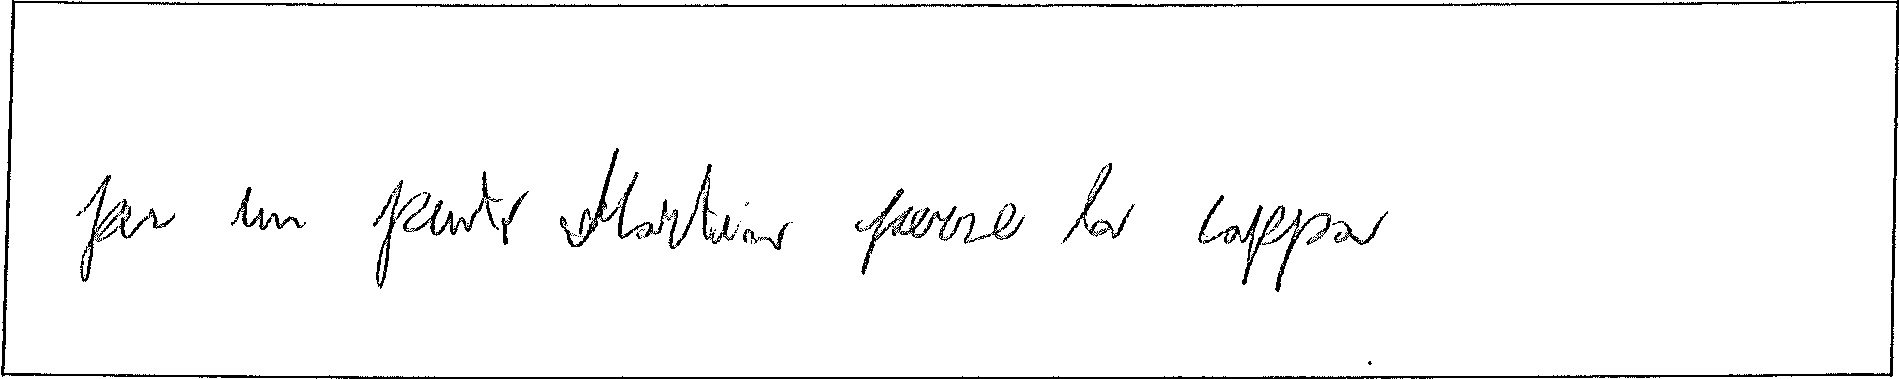 per un punto Martina perse la cappa